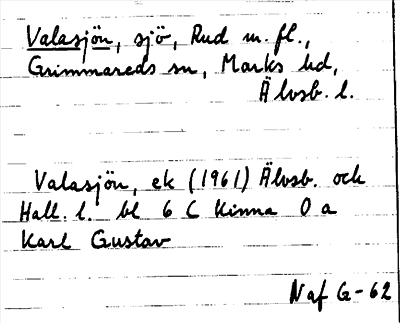 Valasjön, sjö, Rud m. fl.,
Grimmareds sn, Marks hd,
Älvsb. l.
Valasjön, ek (1961) Älvsb. och
Hall. l. bl 6 C Kinna O a
Karl Gustav
Naf G-62